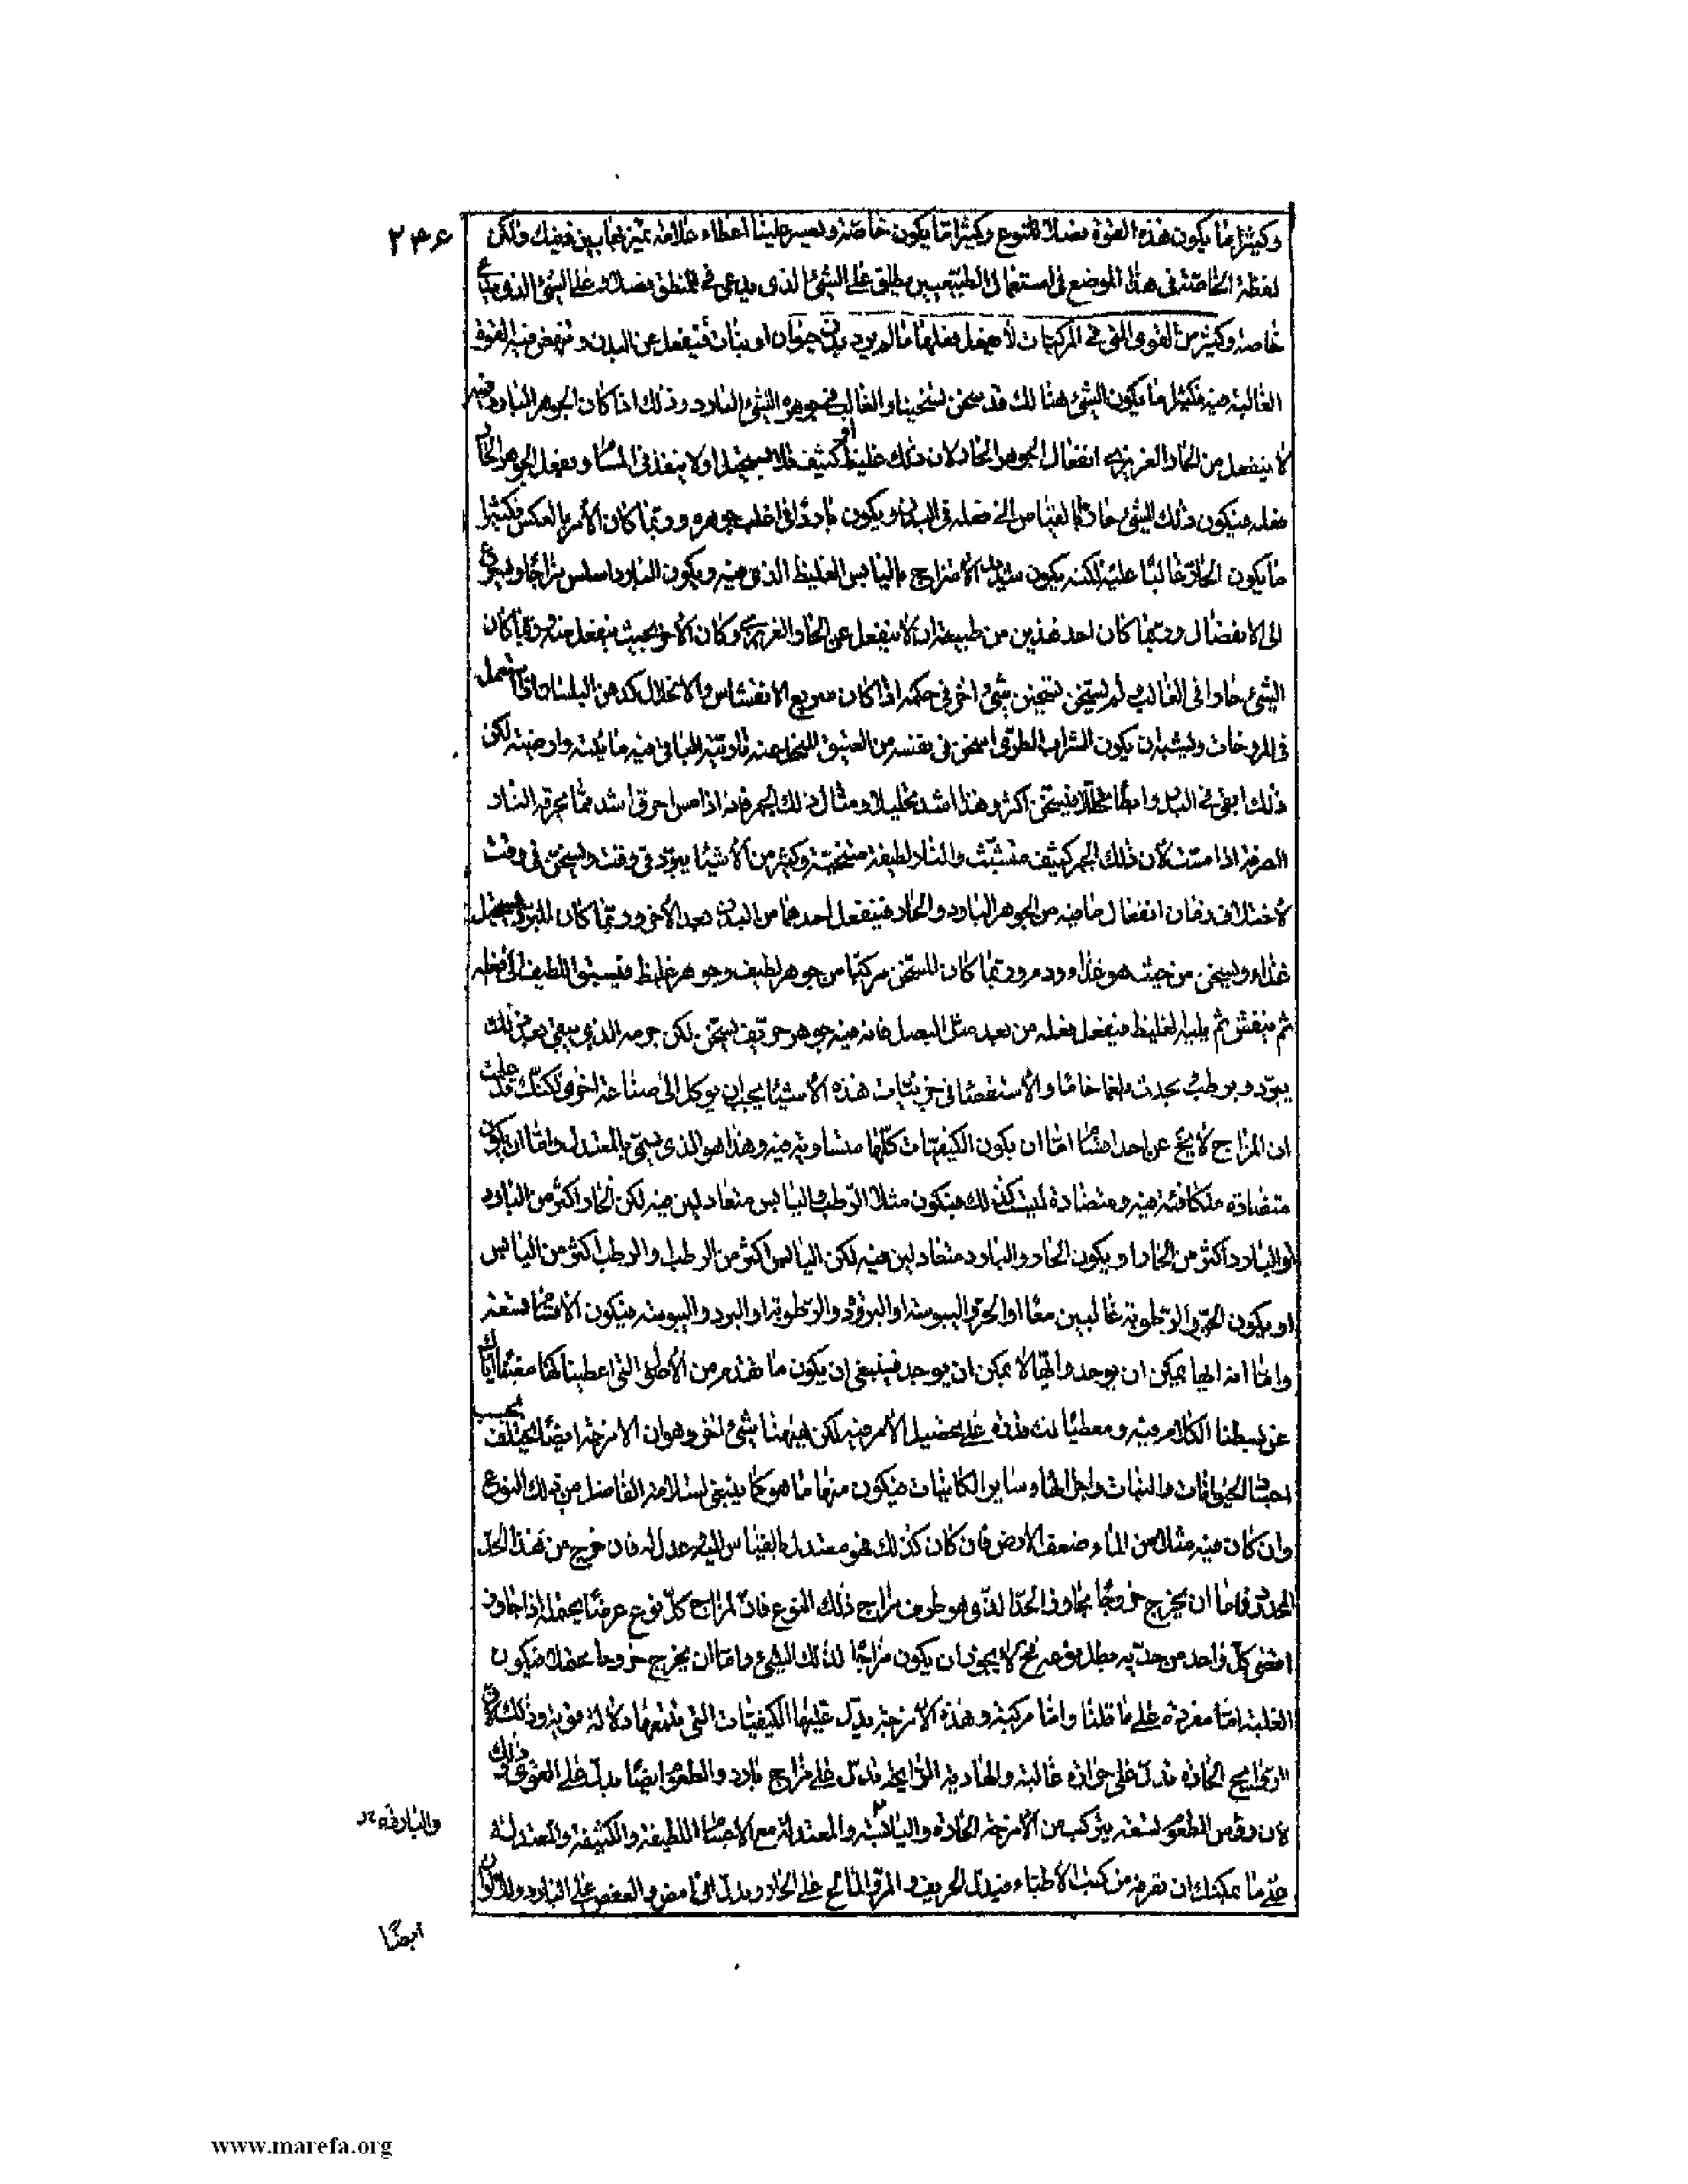 ٢٣۶
وكثيرا ما يكون هذه القوة فصلا للنوع وكثيرا ما يكون خاصة ويعسر علينا اعطاء علامة تميز بها بين ذينك ولكن
لفظة الخاصة فى هذا الموضع فى استعمال الطبيعيين يطلق على الشئ الذى يدعى فى المنطق فصلا وعلى الشئ الذى يدعى
خاصة وكثير من القوى التى فى المركبات لا يفعل فعلها ما لم يرد بدن حيوان او نبات فينفعل عن البدن وتنهض فيه القوة
الغالبة فيه فكثيرا ما يكون الشئ هنالك قد يسخن تسخينا والغالب فى جوهره الشئ البارد وذلك اذا كان الجوهر البارد فيه
لا ينفعل من الحار الغريزى انفعال الجوهر الحار لان ذلك غليظ او كثيف فلا يستحيل ولا ينفذ فى المسام ويفعل الجوهر الحار
فعله فيكون ذلك الشئ حارا بالقياس الى فعله فى البدن ويكون باردا فى اغلب جوهره وربما كان الأمر بالعكس فكثيرا
ما يكون الحار غالبا عليه لكنه يكون شديد الامتزاج باليابس الغليظ الذى فيه ويكون البارد اسلس مزاجا واسرع
الى الانفصال وربما كان احد هذين من طبيعته ان لا ينفعل عن الحار الغريزى وكان الأخر بحيث ينفعل منه وربما كان
الشئ حارا فى الغالب لم يسخن تسخين شئ اخر فى حكمه اذا كان سريع الانفشاش والانحلال كدهن البلسان اذا استعمل
فى المروخات ويشبه ان يكون الشراب الطرى اسخن فى نفسه من العتيق المتحلل عنه ناريته الباقى فيه مائيته وارضيته لكن
ذلك ابقى فى البدن وابطأ تحللا فيسخن اكثر وهذا اشد تحليلا ومثال ذلك الجمر فانه اذا مس احرق اشد مما يحرقه النار
الصرفة اذا مست لأن ذلك الجمر كثيف متشبث والنار لطيفة متنحية وكثير من الأشيا يبرد فى وقت ويسخن فى وقت
لأختلاف زمان انفعال ما فيه من الجوهر البارد والحار فينفعل احدهما من البدن بعد الأخر وربما كان المبرد يستحيل
غذاء ويسخن من حيث هو غذاء ودم وربما كان المسخن مركبا من جوهر لطيف وجوهر غليظ فيسبق اللطيف الى فعله
ثم ينفش ثم يليه الغليظ فيفعل فعله من بعد مثل البصل فانه فيه جوهر حريف يسخن لكن جرمه الذى يبقى بعد ذلك
يبرد ويرطب يحدث بلغما خاما والأستقصا فى جزئيات هذه الأشيا يجب ان يوكل الى صناعة اخرى لكنك قد علمت
ان المزاج لا يخ عن احد اقسام اما ان يكون الكيفيات كلها متساوية فيه وهذا هو الذى يسمى بالمعتدل واما ان يكون
متضادة متكافئة فيه ومتضادة ليست كذلك فيكون مثلا الرطب واليابس متعادلين فيه لكن الحار اكثر من البارد
او البارد اكثر من الحار او يكون الحار والبارد متعادلين فيه لكن اليابس اكثر من الرطب والرطب اكثر من اليابس
او يكون الحر والرطوبة غالبين معا او الحر واليبوسة او البرد والرطوبة او البرد واليبوسة فيكون الأقسام تسعة
واما انه ايها يمكن ان يوجد وايها لا يمكن ان يوجد فينبغى ان يكون ما تقدم من الأصول التى اعطيناكها مغنيا اياك
عن بسطنا الكلام فيه ومعطيا لك قدرة على تحصيل الأمر فيه لكن هيهنا شئ اخر وهو ان الامزجة ايضا يختلف بحسب
اجناس الحيوانات والنبات واحوالها وساير الكاينات فيكون منها ما هو كما ينبغى لسلامة الفاضل من ذلك النوع
وان كان فيه مثلا من الماء ضعف الارض فان كان كذلك فهو معتدل بالقياس اليه وعدل له فان خرج من هذا الحد
المحدود فاما ان يخرج خروجا يجاوز الحد الذى هو طرف مزاج ذلك النوع فان لمزاج كل نوع عرضا يحتمله اذا جاوز
اقصى كل واحد من حديه بطل نوعه فح لا يجوز ان يكون مزاجا لذلك الشئ واما ان يخرج خروجا يحتمله فيكون
الغلبة اما مفردة على ما قلنا واما مركبة وهذه الامزجة يدل عليها الكيفيات التى تتبعها دلالة قوية وذلك لان
الروايح الحادة تدل على حرارة غالبة والهادية الرايحة تدل على مزاج بارد والطعوم ايضا يدل على القوى وذلك
لان رؤس الطعوم تسعة يتركب من الأمزجة الحارة واليابسة والمعتدلة مع الاجسام اللطيفة والكثيفة والمعتدلة
والباردة
على ما يمكنك ان تعرفه من كتب الأطباء فيدل الحريف والمر والمالح على الحار ويدل الحامض والعفص على البارد والالوان
ايضا
www.marefa.org